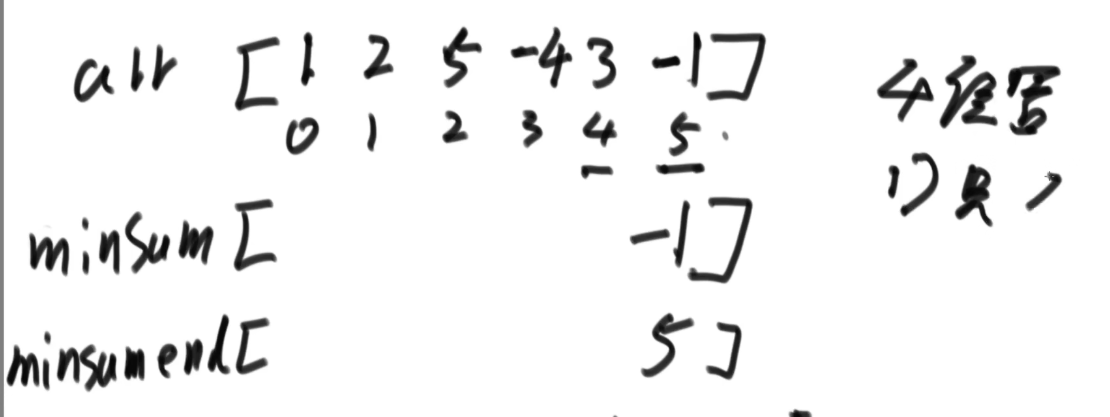 arr [1 2 5 -4 3 -1] 4位置
0 1 2 3 4 5
1)只
minsum [ -1]
minsumend [ 5]